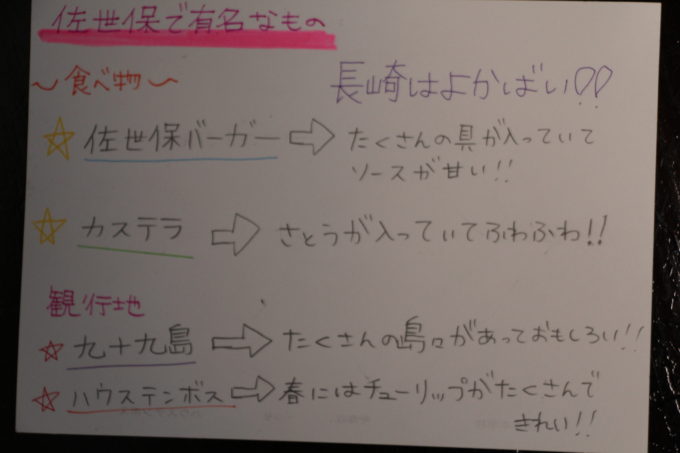 佐世保で有名なもの
～食べ物～
長崎はよかばい!!
☆佐世保バーガー⇨たくさんの具が入っていて
ソースが甘い!!
☆カステラ⇨さとうが入っていてふわふわ!!
観行地
☆九十九島⇨たくさんの島々があっておもしろい!!
☆ハウステンボス⇨春にはチューリップがたくさんで
きれい!!